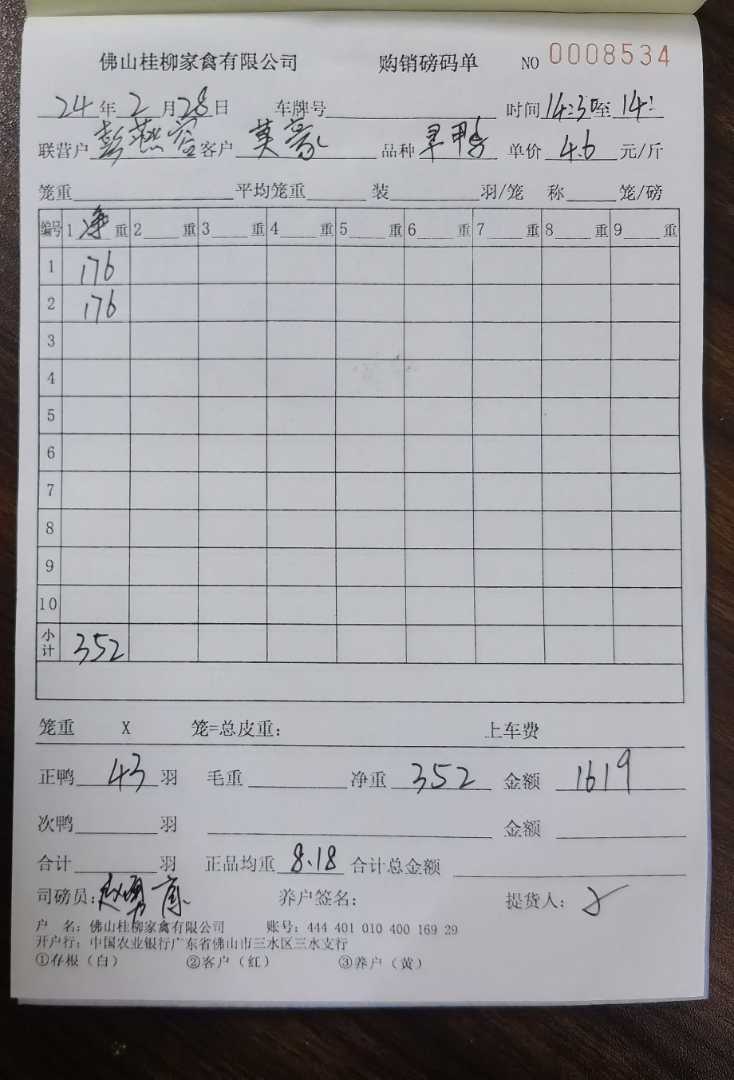 佛山桂柳家禽有限公司 购销磅码单 NO 0008534
24年2月28日 车牌号 时间14:30至14:
联营户彭燕容客户莫豪 品种旱鸭 单价4.6元/斤
笼重 平均笼重 装 羽/笼 称 笼/磅
编号 1净重 2 重 3 重 4 重 5 重 6 重 7 重 8 重 9 重
1 176
2 176
3
4
5
6
7
8
9
10
小计 352
笼重 X 笼=总皮重: 上车费
正鸭43羽 毛重 净重352 金额1619
次鸭 羽 金额
合计 羽 正品均重8.18 合计总金额
司磅员: 养户签名: 提货人:
户 名: 佛山桂柳家禽有限公司 账号: 444 401 010 400 169 29
开户行: 中国农业银行广东省佛山市三水区三水支行
①存根(白) ②客户(红) ③养户(黄)